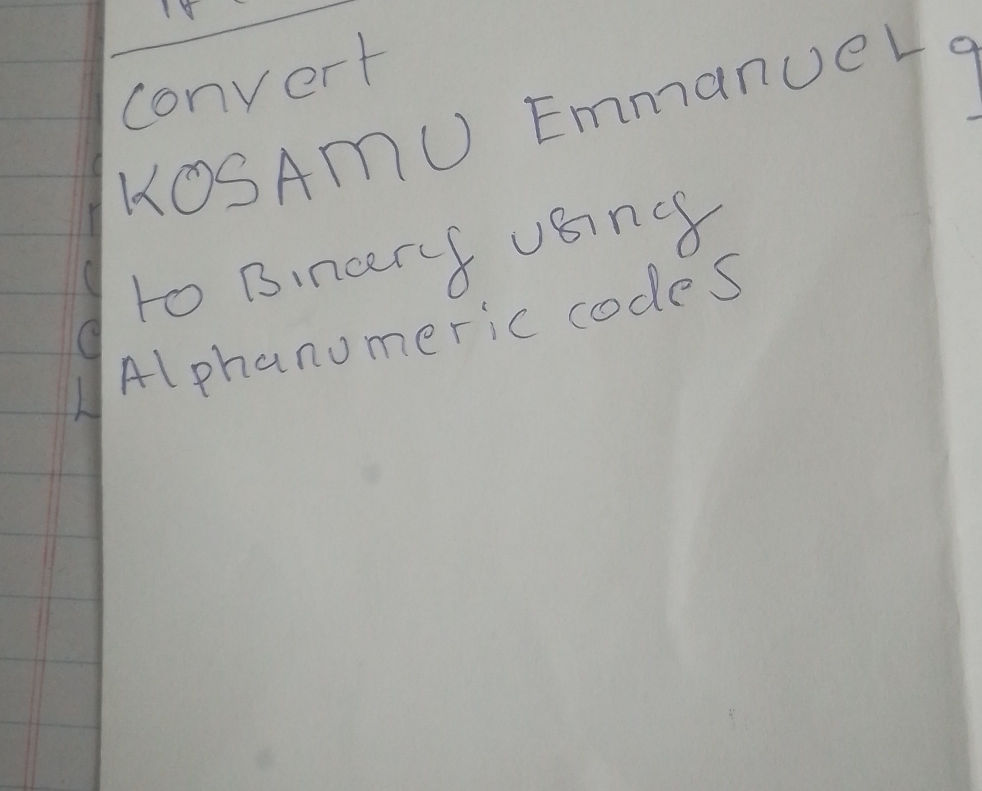 Convert
KOSAMU EmmanueL
to Binary using
Alphanumeric codes